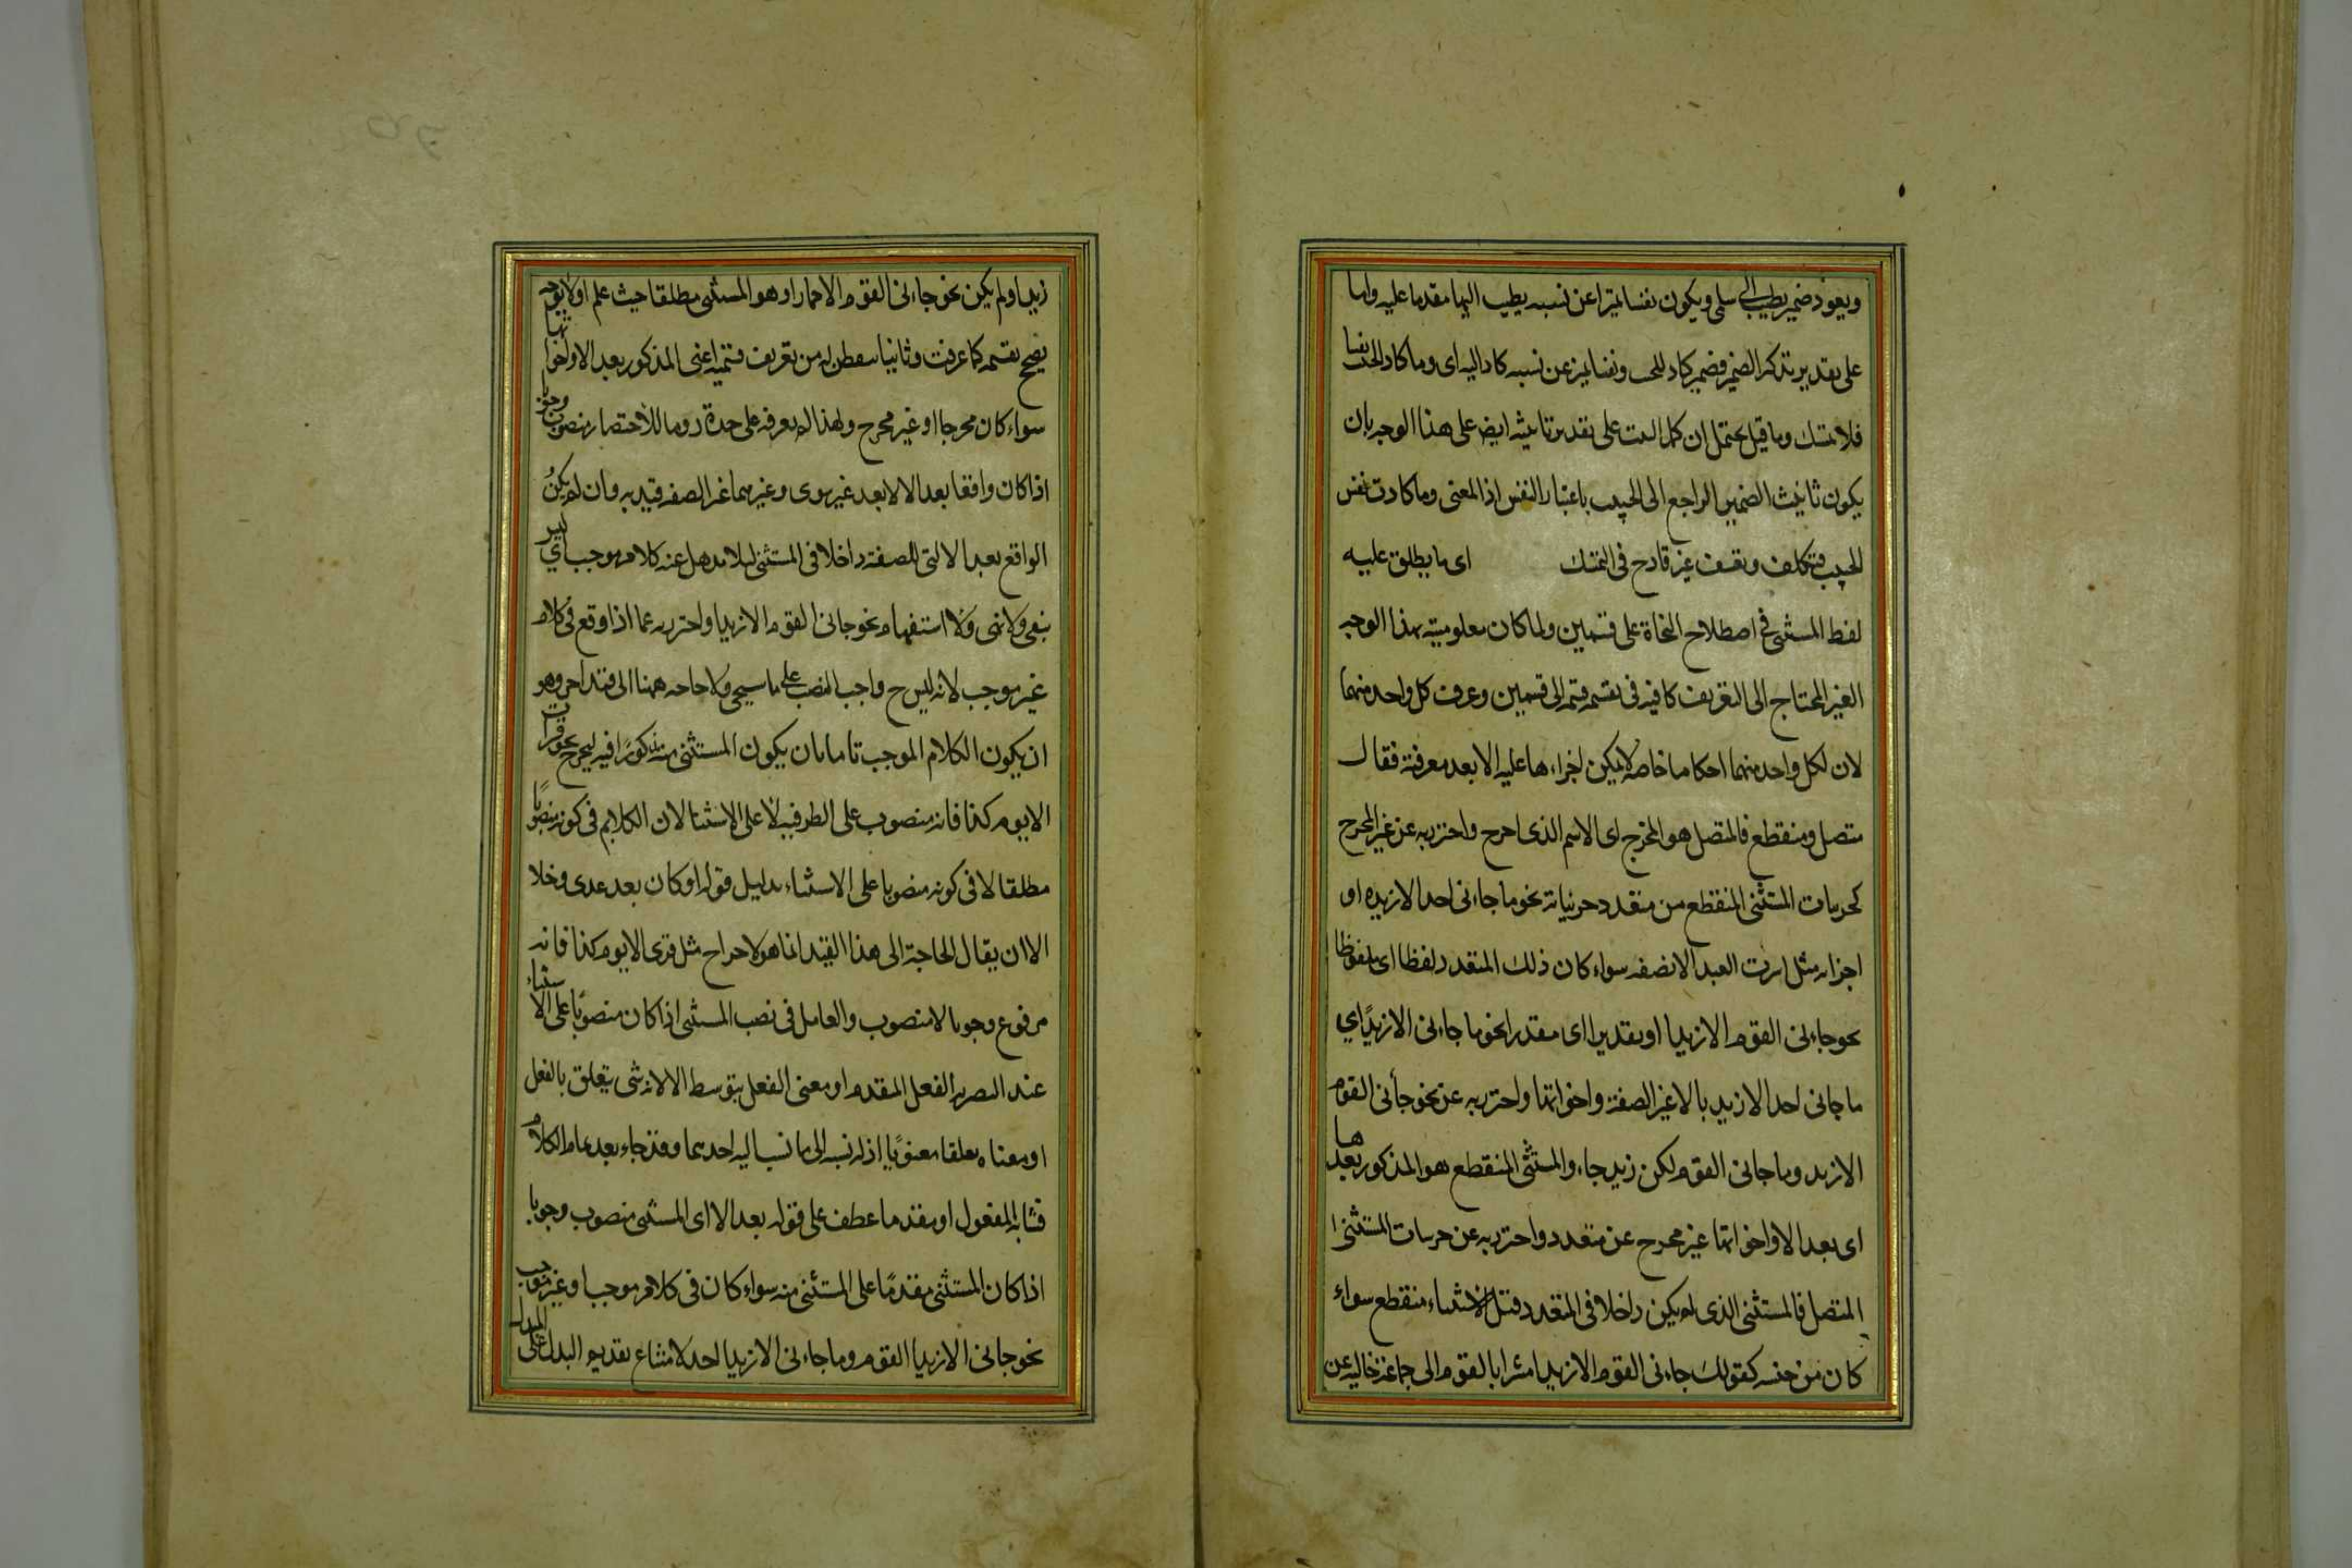 ويعود ضمير يطيب الى سلمى ويكون نفسا تميزا عن نسبه يطيب اليها مقدما عليه واما
على تقدير تذكير الضمير فضمير كاد للحبيب ونفسا تميز عن نسبه كاد اليه اى وما كاد الحبيب نفسا
فلا تمسك وما قيل يحتمل ان يحمل البيت على تقدير تانيثه ايضا على هذا الوجه بان
يكون تانيث الضمير الراجع الى الحبيب باعتبار النفس اذ المعنى وما كادت نفس
الحبيب فتكلف وتعسف غير قادح فى التمسك اى ما يطلق عليه
لفظ المستثنى فى اصطلاح النحاة على قسمين ولما كان معلوميته بهذا الوجه
الغير المحتاج الى التعريف كافيه فى تقسيمه قسمه الى قسمين وعرف كل واحد منهما
لان لكل واحد منهما احكاما خاصه لا يمكن اجراءها عليه الا بعد معرفته فقال
متصل ومنقطع فالمتصل هو المخرج اى الاسم الذى اخرج واحترز به عن غير المخرج
كجزئيات المستثنى المنقطع من متعدد جزئياته نحو ما جاءنى احد الا زيد او
اجزائه مثل اشتريت العبد الا نصفه سواء كان ذلك المتعدد لفظا اى ملفوظا
نحو جاءنى القوم الا زيدا او تقديرا اى مقدرا نحو ما جاءنى الا زيدًا اي
ما جانى احد الا زيد بالا غير الصفة واخواتها واحترز به عن نحو جأنى القوم
الا زيد وما جانى القوم لكن زيد جاء والمستثنى المنقطع هو المذكور بعدها
اى بعد الا واخواتها غير مخرج عن متعدد واحترز به عن جزئيات المستثنى
المتصل فالمستثنى الذى لم يكن داخلا فى المتعدد قبل الاستثناء منقطع سواء
كان من جنسه كقولك جاءنى القوم الا زيدا مشيرا بالقوم الى جماعة خاليه عن
زيد او لم يكن نحو جاءنى القوم الا حمارا وهو المستثنى مطلقا حيث علم اولا بوجه
يصح تقسيمه كما عرفت وثانيا بما يفطن له من تعريف قسميه اعنى المذكور بعد الا واخواتها
سواء كان مخرجا او غير مخرج ولهذا لم يعرفه على حدة روما للاختصار منصوب وجوبا
اذا كان واقعا بعد الا لا بعد غير وسوى وغيرهما غير الصفه قيد به وان لم يكن
الواقع بعد الا التى للصفة داخلا فى المستثنى لئلا يذهل عنه كلام موجب اي ليس
بنفى ولا نهى ولا استفهام نحو جانى القوم الا زيدا واحترز به عما اذا وقع فى كلام
غير موجب لانه ليس ح واجب النصب على ما سيجى ولا حاجه ههنا الى قيد اخر وهو
ان يكون الكلام الموجب تاما بان يكون المستثنى منه مذكورًا فيه ليخرج نحو قرات
الا يوم كذا فانه منصوب على الظرفيه لا على الاستثنا لان الكلام فى كونه منصوبًا
مطلقا لا فى كونه منصوبا على الاستثناء بدليل قوله او كان بعد عدى وخلا
الا ان يقال الحاجة الى هذا القيد انما هو لاخراج مثل قرى الا يوم كذا فانه
مرفوع وجوبا لا منصوب والعامل فى نصب المستثنى اذا كان منصوبًا على الاستثناء
عند البصريه الفعل المقدم او معنى الفعل بتوسط الا لانه شى يتعلق بالفعل
او معناه تعلقا معنويًا اذ له نسبه الى ما نسب اليه احدهما وقد جاء بعد تمام الكلام
فشابه المفعول او مقدما عطف على قوله بعد الا اى المستثنى منصوب وجوبا
اذا كان المستثنى مقدمًا على المستثنى منه سواء كان فى كلام موجب او غير موجب
نحو جانى الا زيدا القوم وما جاءنى الا زيدا احد لامتناع تقديم البدل على المبدل